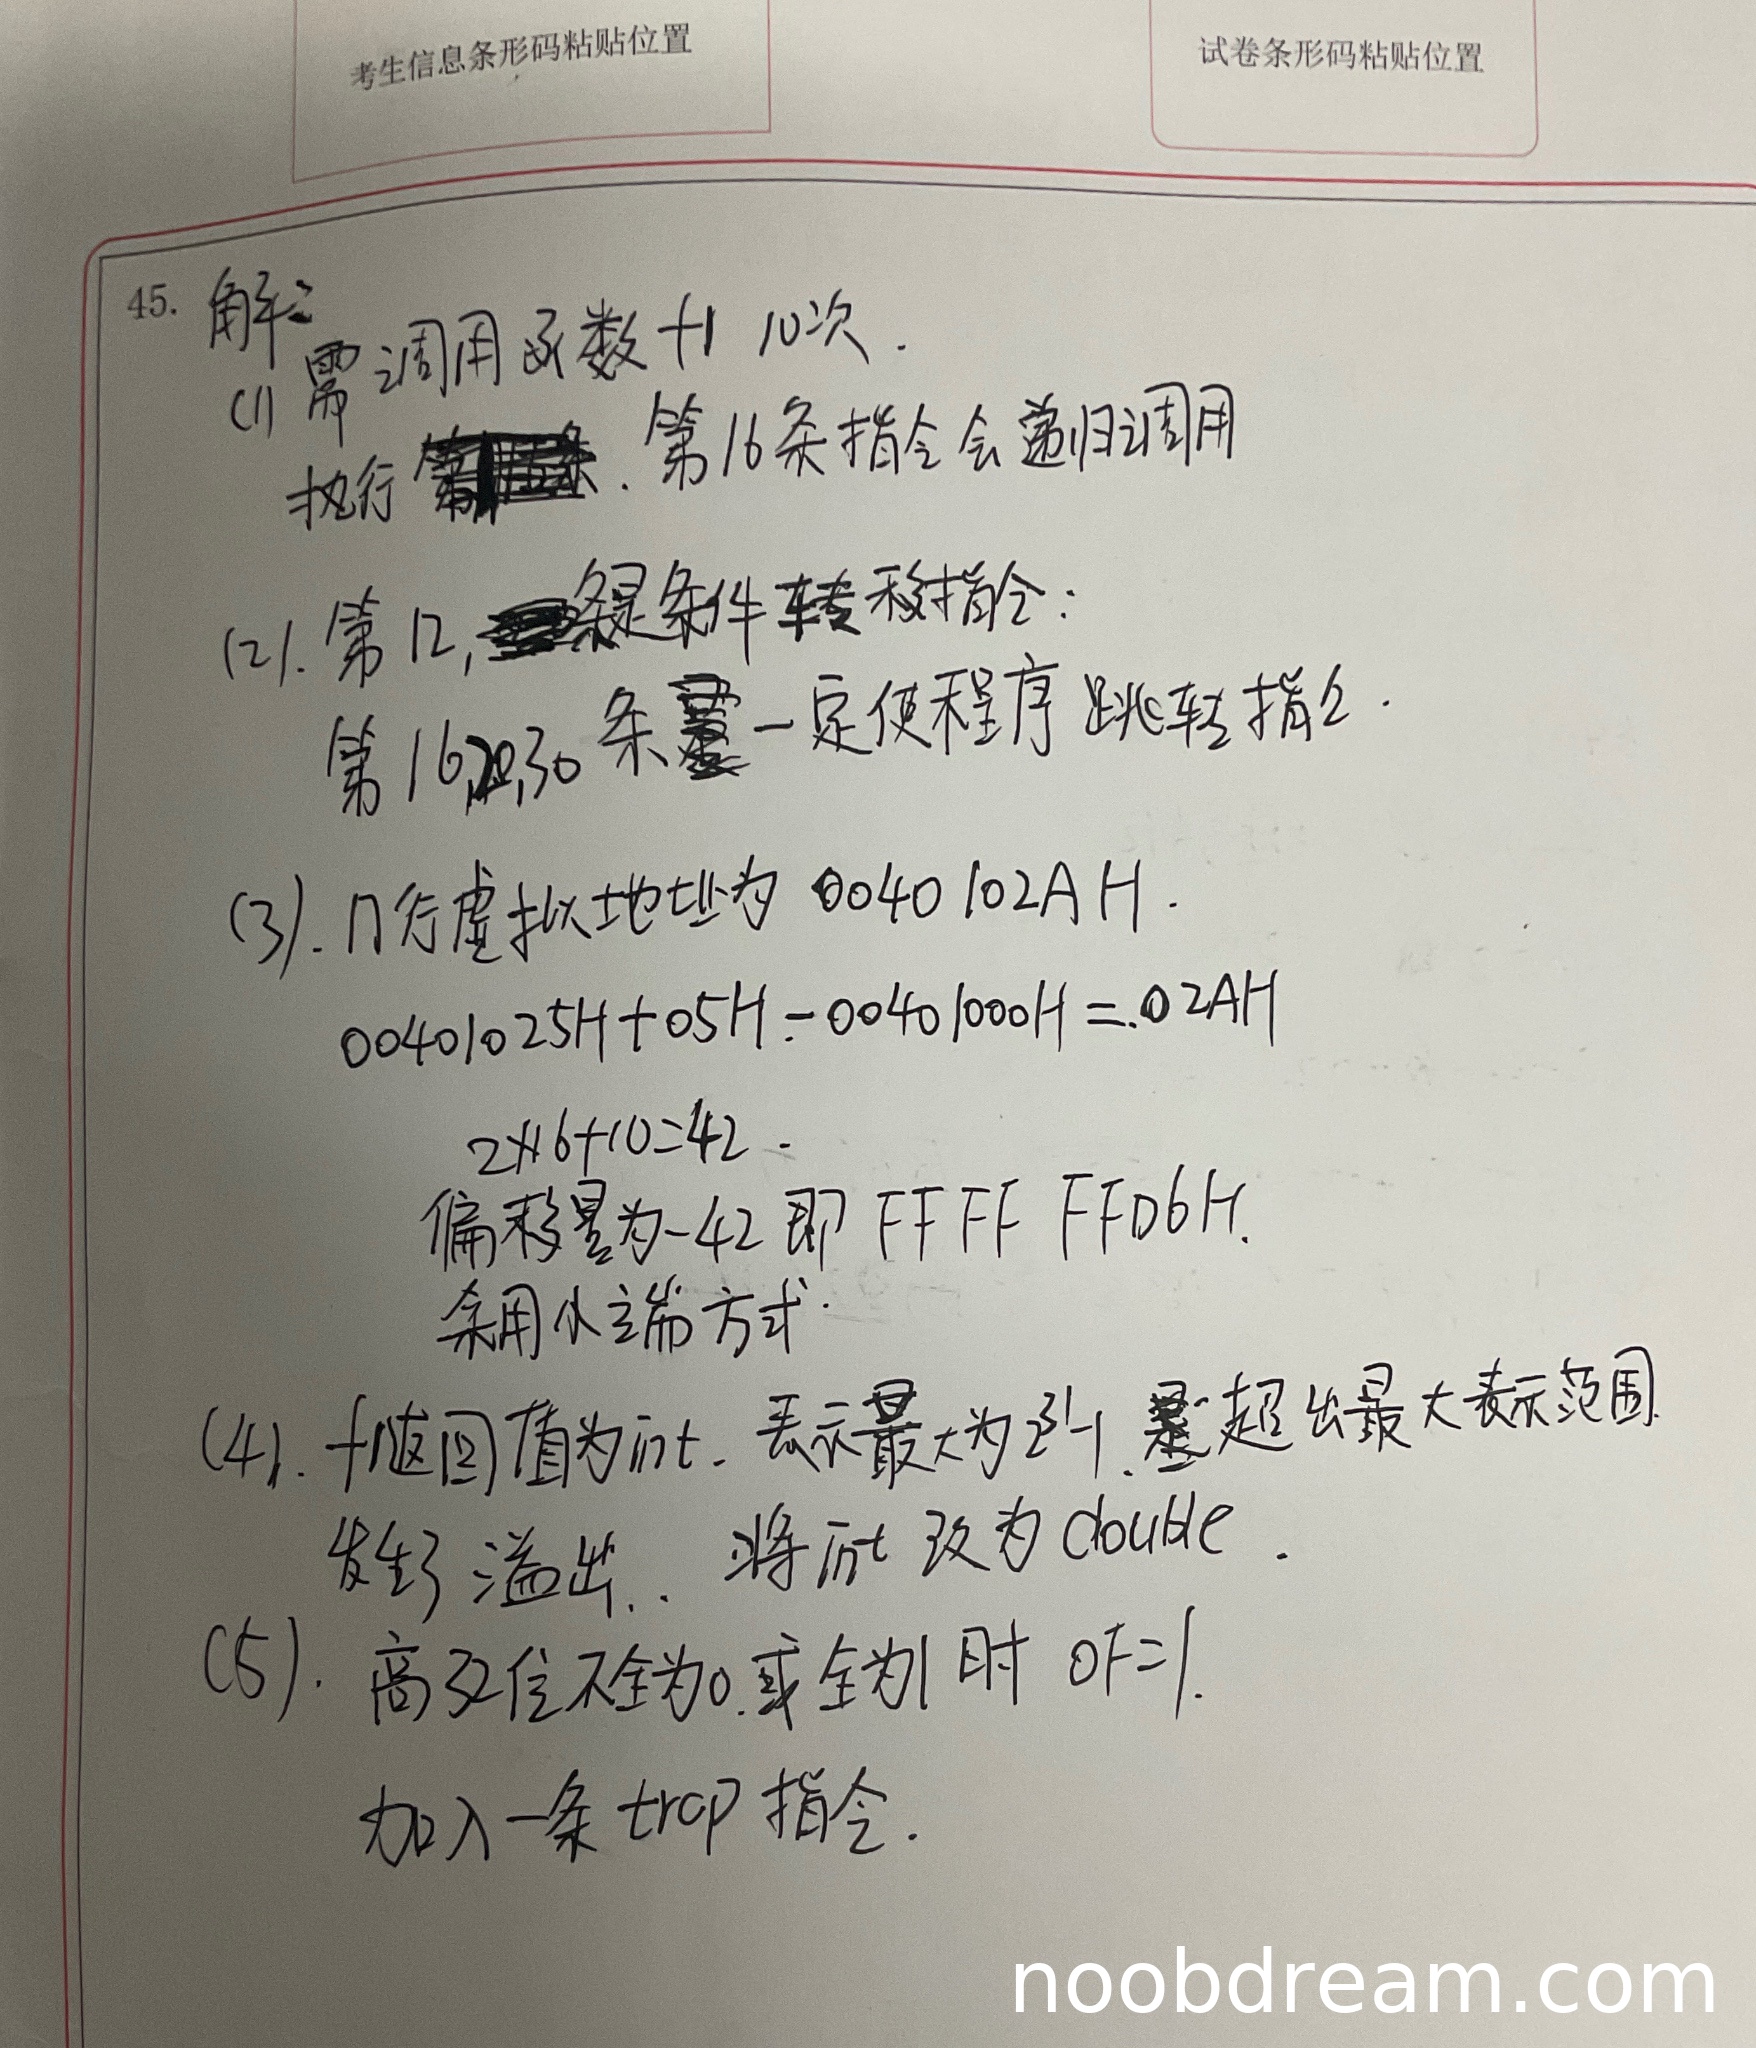 考生信息条形码粘贴位置
试卷条形码粘贴位置
45. 解:
(1) 需调用函数f1 10次.
执行 . 第16条指令会递归调用
(2). 第12, 条是条件转移指令:
第16,20,30 条 一定使程序跳转指令.
(3). 17行虚拟地址为 0040 102AH.
00401025H+05H-00401000H=.02AH
2×16+10=42.
偏移量为-42 即 FFFF FFD6H.
采用小端方式.
(4). f1返回值为int. 表示最大为2³¹-1. 超出最大表示范围.
发生了溢出.. 将int 改为double.
(5). 高32位不全为0.或全为1时 OF=1.
加入一条trap指令.
noobdream.com